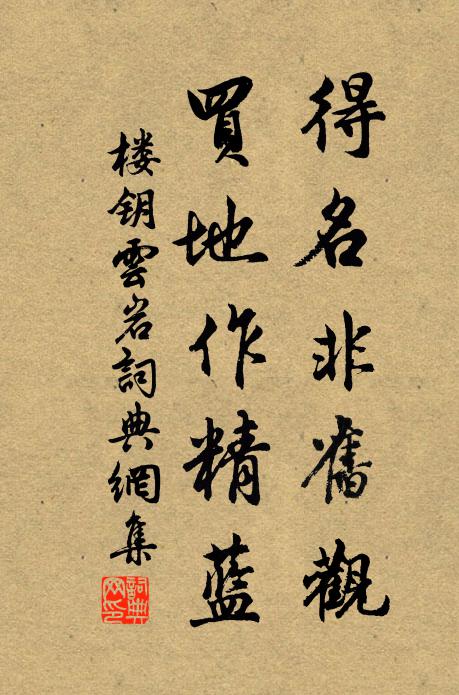 得名非舊觀
買地作精藍
楼钥雲岩詞典網集
詞典网印